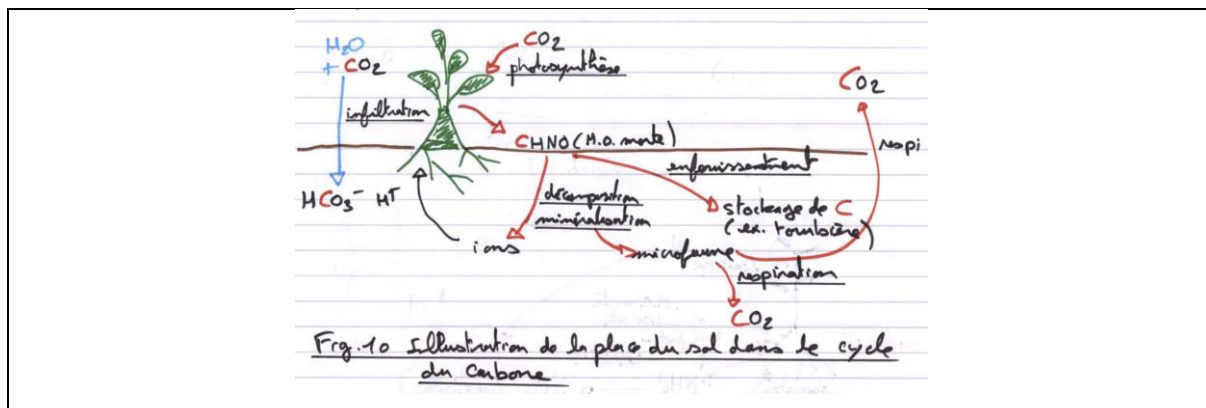 H₂O
+ CO₂
CO₂
photosynthèse
CO₂
infiltration
CHNO (M.O. morte)
respi
enfouissement
HCO₃⁻ H⁺
décomposition
minéralisation
stockage de C
(ex. tourbière)
ions
microfaune
respiration
CO₂
Fig. 10 Illustration de la place du sol dans le cycle
du carbone